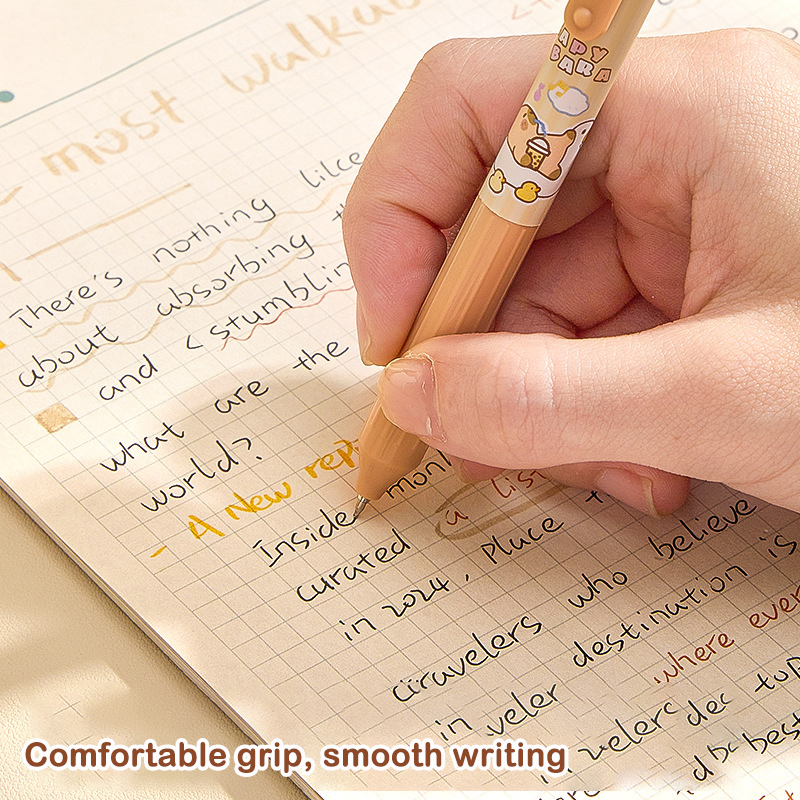 most walkab
APY
BARA
There's nothing like
about absorbing
and < stumblin
what are the
world?
- A New rep
Inside mon
curated a lis
in 2024, Place
travelers who believe
in veler destination is
where ever
in velers dec top
dbc best
Comfortable grip, smooth writing